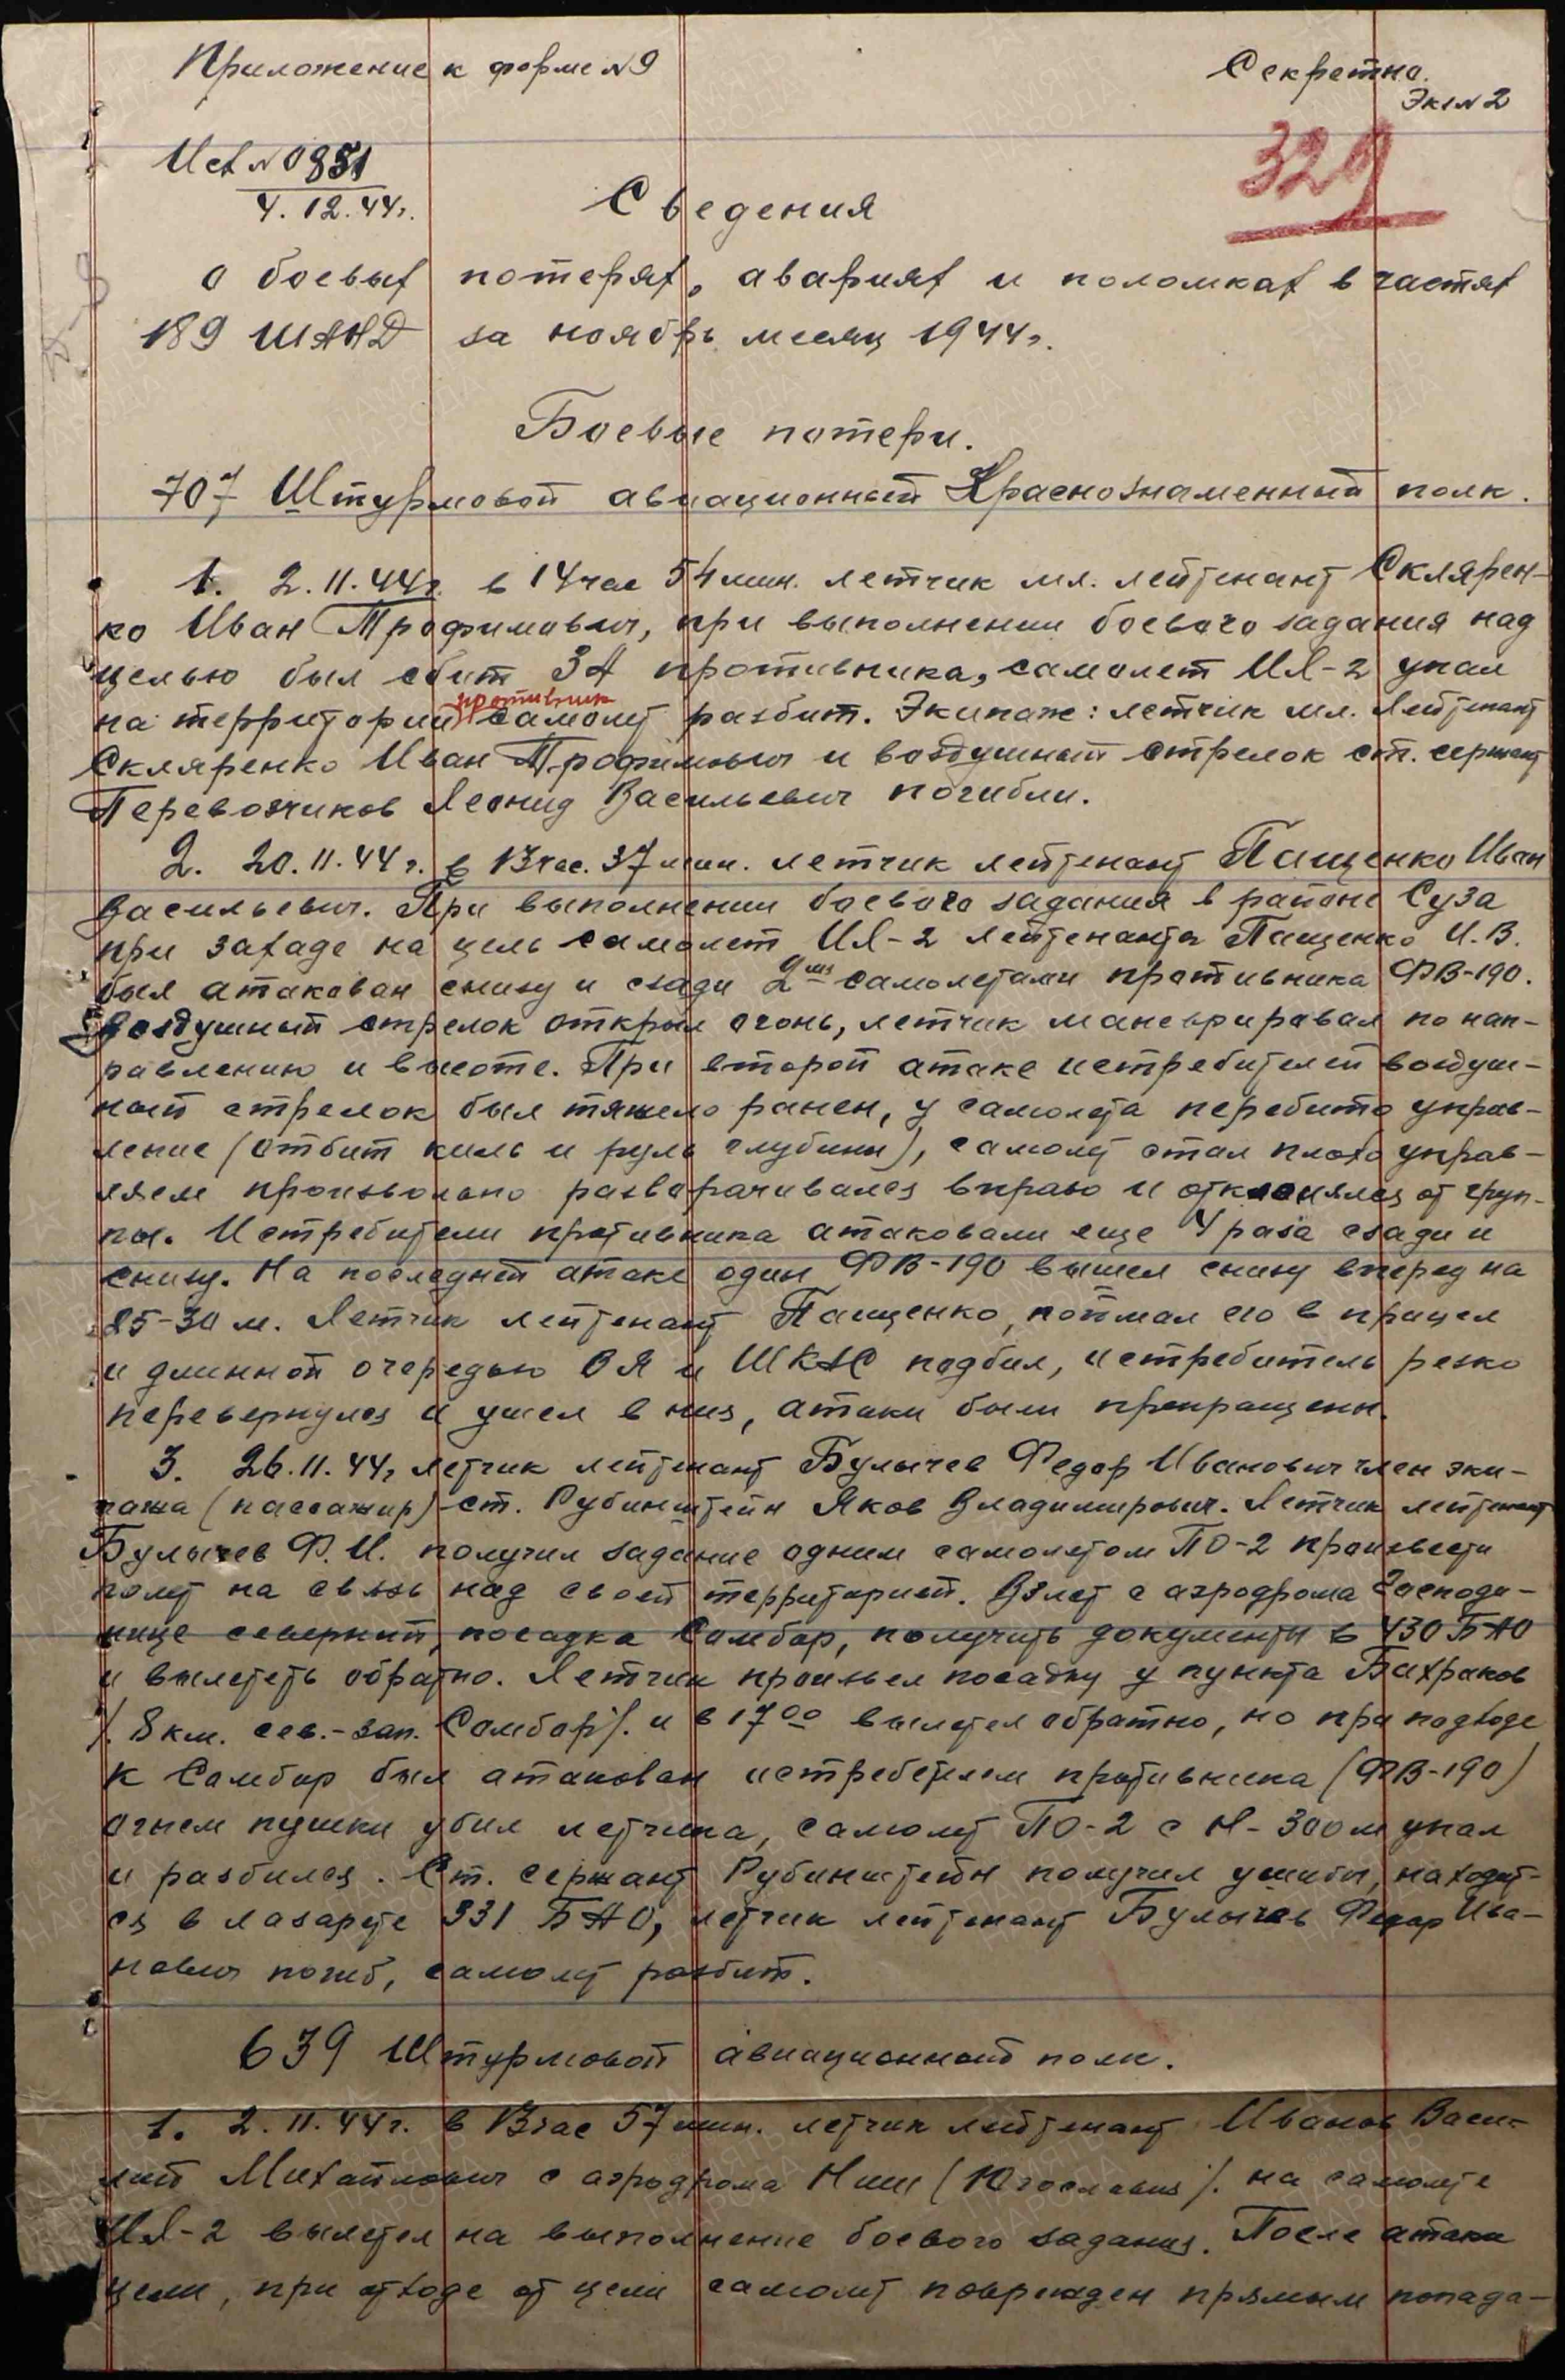 Приложение к форме №9
Секретно.
Экз №2
Исх №0851
4.12.44г.
329
Сведения
о боевых потерях, авариях и поломках в частях
189 ШАНД за ноябрь месяц 1944г.
Боевые потери.
707 Штурмовой авиационный Краснознаменный полк.
1. 2.11.44г. в 14час 54мин. летчик мл. лейтенант Склярен-
ко Иван Трофимович, при выполнении боевого задания над
целью был сбит ЗА противника, самолет ИЛ-2 упал
противник
на территории самолет разбит. Экипаж: летчик мл. лейтенант
Скляренко Иван Трофимович и воздушный стрелок ст. сержант
Перевозчиков Леонид Васильевич погибли.
2. 20.11.44г. в 13час. 37мин. летчик лейтенант Пащенко Иван
Васильевич. При выполнении боевого задания в районе Суза
при заходе на цель самолет ИЛ-2 лейтенанта Пащенко И.В.
был атакован снизу и сзади 2мя самолетами противника ФВ-190.
Воздушный стрелок открыл огонь, летчик маневрировал по нап-
равлению и высоте. При второй атаке истребителей воздуш-
ный стрелок был тяжело ранен, у самолета перебито управ-
ление (отбит киль и руль глубины), самолет стал плохо управ-
ляем произвольно разворачивался вправо и отклонялся от груп-
пы. Истребители противника атаковали еще 4 раза сзади и
снизу. На последней атаке один ФВ-190 вышел снизу вперед на
25-30 м. Летчик лейтенант Пащенко, поймал его в прицел
и длинной очередью ВЯ и ШКАС подбил, истребитель резко
перевернулся и ушел в низ, атаки были прекращены.
3. 26.11.44г летчик лейтенант Булычев Федор Иванович член эки-
пажа (пассажир) ст. Рубинштейн Яков Владимирович. Летчик лейтенант
Булычев Ф.И. получил задание одним самолетом ПО-2 произвести
полет на связь над своей территорией. Взлет с аэродрома Господи-
нице северный, посадка Самбор, получить документы в 430 БАО
и вылететь обратно. Летчик произвел посадку у пункта Бахраков
/. 8км. сев.-зап. Самбор/. и в 17⁰⁰ вылетел обратно, но при подходе
к Самбор был атакован истребетелем противника (ФВ-190)
огнем пушки убил летчика, самолет ПО-2 с Н-300м упал
и разбился. Ст. сержант Рубинштейн получил ушибы, находит-
ся в лазарете 331 БАО, летчик лейтенант Булычев Федор Ива-
нович погиб, самолет разбит.
639 Штурмовой авиационный полк.
1. 2.11.44г. в 13час 57мин. летчик лейтенант Иванов Васи-
лий Михайлович с аэродрома Ниш (Югославия/. на самолете
ИЛ-2 вылетел на выполнение боевого задания. После атаки
цели, при отходе от цели самолет поврежден прямым попада-